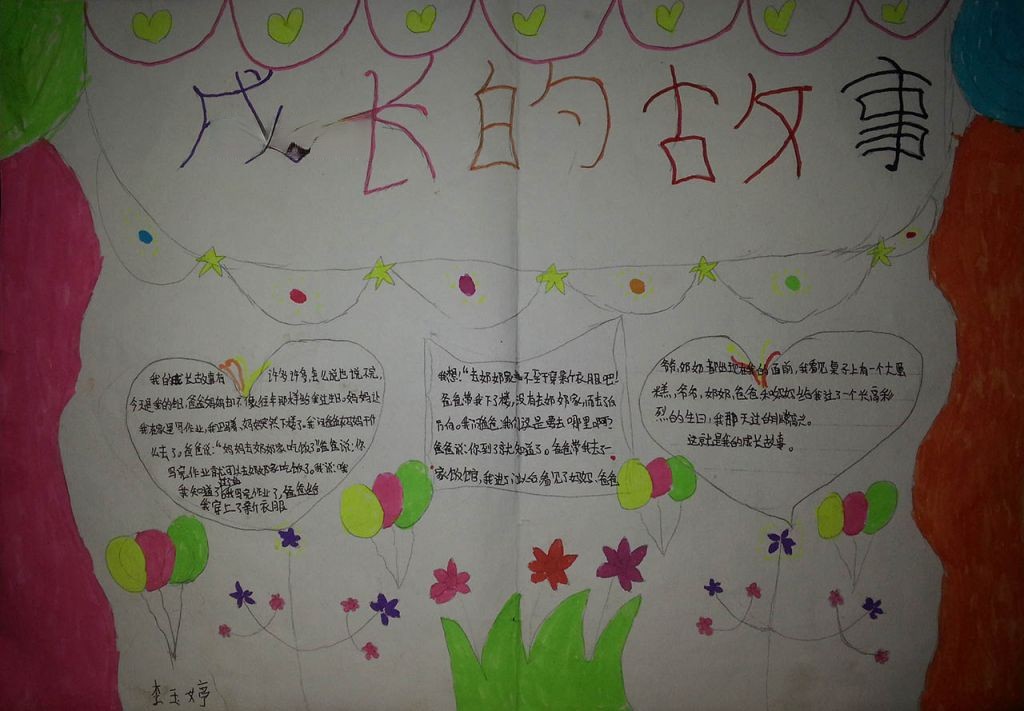 成长的故事
我的成长故事有 许多许多,怎么说也说不完,
今天是我的生日,爸爸妈妈却不像往年那样给我过生日。妈妈让
我在家里写作业,我
妈妈突然下楼了。我问爸爸妈妈干什
么去了。爸爸说:“妈妈去奶奶家吃饭了”爸爸说:你
写完作业就可以去奶奶家吃饭了。我说:哦
我知道了
我写完作业了,爸爸给
我穿上了新衣服
我想:“去奶奶家也不至于穿新衣服吧!
爸爸带我下了楼,没有去奶奶家,而去了
方向。我问爸爸:我们这是要去哪里啊?
爸爸说:你到了就知道了。爸爸带我去了一
家饭馆,我进了以后看见了妈妈、爸爸
爷爷、奶奶都出现在我的面前,我看见桌子上有一个大蛋
糕,爷爷,奶奶,爸爸和妈妈给我过了一个长高彩
烈的生日,我那天过的非常高兴。
这就是我的成长故事。
李玉婷